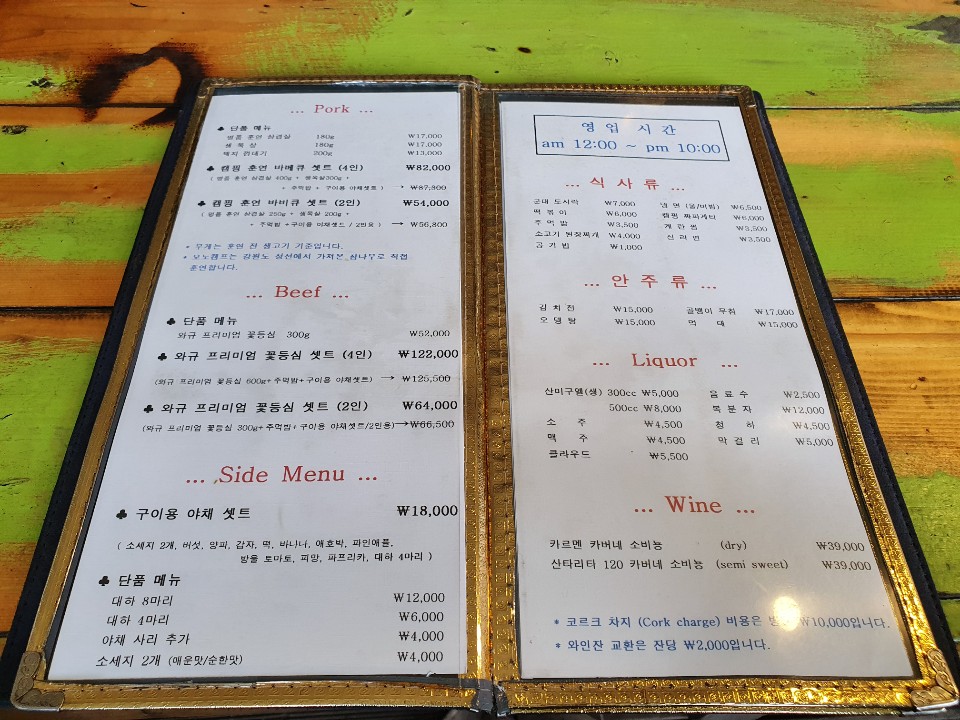 ... Pork ...
♣ 단품 메뉴
명품 훈연 삼겹살 180g ₩17,000
생 목 살 180g ₩17,000
돼지 껍데기 200g ₩13,000
♣ 캠핑 훈연 바베큐 셋트 (4인) ₩82,000
( 명품 훈연 삼겹살 400g + 생목살300g +
+ 주먹밥 + 구이용 야채셋트 ) → ₩87,300
♣ 캠핑 훈연 바비큐 셋트 (2인) ₩54,000
( 명품 훈연 삼겹살 250g + 생목살 200g +
+ 주먹밥 +구이용 야채셋트 / 2인용 ) → ₩56,800
* 무게는 훈연 전 생고기 기준입니다.
* 모노캠프는 강원도 정선에서 가져온 참나무로 직접
훈연합니다.
... Beef ...
♣ 단품 메뉴
와규 프리미엄 꽃등심 300g ₩52,000
♣ 와규 프리미엄 꽃등심 셋트 (4인) ₩122,000
(와규 프리미엄 꽃등심 600g+주먹밥+구이용 야채셋트) → ₩125,500
♣ 와규 프리미엄 꽃등심 셋트 (2인) ₩64,000
(와규 프리미엄 꽃등심 300g+주먹밥+구이용 야채셋트/2인용)→₩66,500
... Side Menu ...
♣ 구이용 야채 셋트 ₩18,000
( 소세지 2개, 버섯, 양파, 감자, 떡, 바나나, 애호박, 파인애플,
방울 토마토, 피망, 파프리카, 대하 4마리 )
♣ 단품 메뉴
대하 8마리 ₩12,000
대하 4마리 ₩6,000
야채 사리 추가 ₩4,000
소세지 2개 (매운맛/순한맛) ₩4,000
영 업 시 간
am 12:00 ~ pm 10:00
... 식 사 류 ...
군대 도시락 ₩7,000 냉 면 (물/비빔) ₩6,500
떡 볶 이 ₩6,000 캠핑 짜파게티 ₩6,000
주 먹 밥 ₩3,500 계 란 찜 ₩3,500
소고기 된장찌개 ₩4,000 신 라 면 ₩3,500
공 기 밥 ₩1,000
... 안 주 류 ...
김 치 전 ₩15,000 골뱅이 무침 ₩17,000
오 뎅 탕 ₩15,000 먹 태 ₩15,000
... Liquor ...
산미구엘(생) 300cc ₩5,000 음 료 수 ₩2,500
500cc ₩8,000 복 분 자 ₩12,000
소 주 ₩4,500 청 하 ₩4,500
맥 주 ₩4,500 막 걸 리 ₩5,000
클라우드 ₩5,500
... Wine ...
카르멘 카버네 소비뇽 (dry) ₩39,000
산타리타 120 카버네 소비뇽 (semi sweet) ₩39,000
* 코르크 차지 (Cork charge) 비용은 ₩10,000입니다.
* 와인잔 교환은 잔당 ₩2,000입니다.